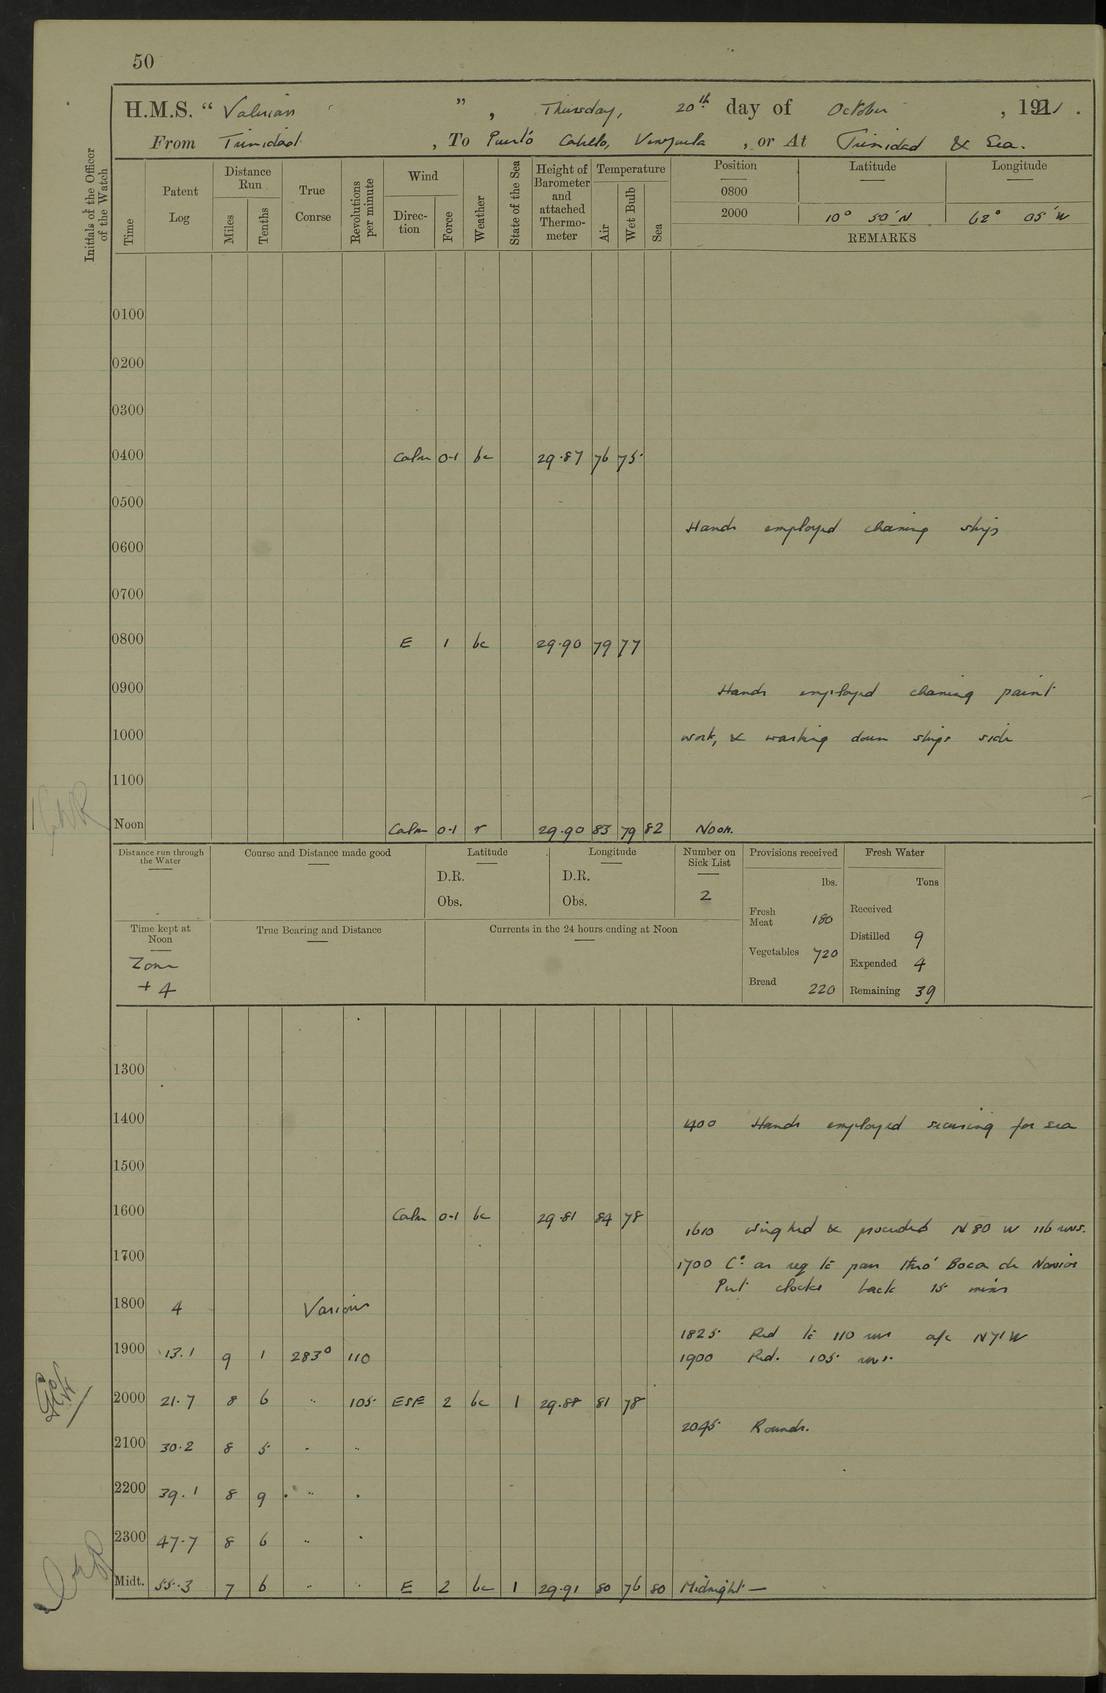 50
H.M.S. " Valerian " , Thursday, 20th day of October , 1921 .
From Trinidad , To Puerto Cabello, Venzuela , or At Trinidad & Sea.
Initials of the Officer of the Watch
Time
Patent Log
Distance Run
Miles
Tenths
True Course
Revolutions per minute
Wind
Direc-tion
Force
Weather
State of the Sea
Height of Barometer and attached Thermo-meter
Temperature
Air
Wet Bulb
Sea
Position Latitude Longitude
0800
2000 10° 50' N 62° 05' W
REMARKS
0100
0200
0300
0400 Calm 0-1 bc 29.87 76 75
0500
Hands employed cleaning ship
0600
0700
0800 E 1 bc 29.90 79 77
0900 Hands employed cleaning paint
1000 work, & washing down ships side
1100
Noon Calm 0-1 r 29.90 83 79 82 Noon.
Distance run through the Water
Course and Distance made good
Latitude
D.R.
Obs.
Longitude
D.R.
Obs.
Number on Sick List
2
Provisions received
lbs.
Fresh Meat 180
Vegetables 720
Bread 220
Fresh Water
Tons
Received
Distilled 9
Expended 4
Remaining 39
Time kept at Noon
Zone
+ 4
True Bearing and Distance
Currents in the 24 hours ending at Noon
1300
1400 1400 Hands employed securing for sea
1500
1600 Calm 0-1 bc 29.81 84 78
1610 weighed & proceeded N 80 W 116 revs.
1700 1700 Co. as req to pass thro' Boca de Navios
Put clocks back 15 mins
1800 4 Various
1825 Red to 110 revs a/c N 71 W
1900 13.1 9 1 283° 110 1900 Red. 105 revs.
2000 21.7 8 6 " 105 ESE 2 bc 1 29.88 81 78
2045 Rounds.
2100 30.2 8 5 " "
2200 39.1 8 9 " "
2300 47.7 8 6 " "
Midt. 55.3 7 6 " " E 2 bc 1 29.91 80 76 80 Midnight —